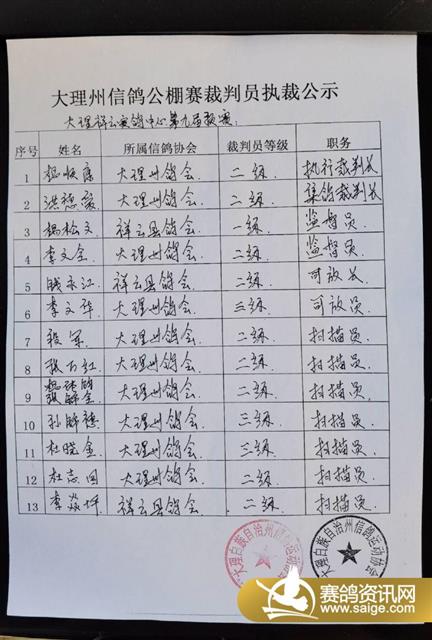 大理州信鸽公棚赛裁判员执裁公示
大理祥云赛鸽中心第九届秋赛
序号 姓名 所属信鸽协会 裁判员等级 职务
1 大理州鸽会 二级 执行裁判长
2 洪德 大理州鸽会 二级 集鸽裁判长
3 杨松文 祥云县鸽会 一级 监督员
4 李文全 大理州鸽会 二级 监督员
5 钱永江 祥云县鸽会 二级 司放长
6 李文华 大理州鸽会 三级 司放员
7 段军 大理州鸽会 二级 扫描员
8 张万红 大理州鸽会 二级 扫描员
9 大理州鸽会 二级 扫描员
10 孙解德 大理州鸽会 三级 扫描员
11 杜晓金 大理州鸽会 三级 扫描员
12 杜志国 大理州鸽会 二级 扫描员
13 李焱坪 祥云县鸽会 二级 扫描员
大理白族自治州信鸽运动协会
赛鸽资讯网
www.saige.com